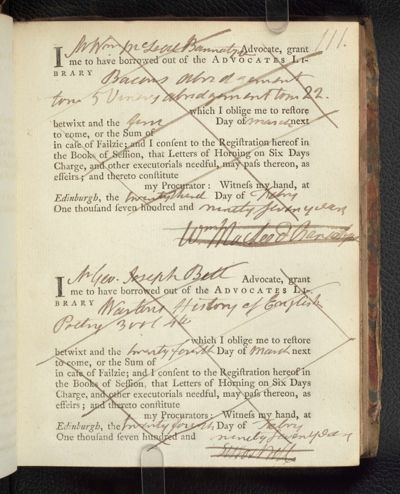 111.
I Mr Wm McLeod Bannatyne Advocate, grant
me to have borrowed out of the ADVOCATES LI-
BRARY Bacons abridgement
tom 5 Viners abridgement tom 22.
which I oblige me to restore
betwixt and the Day of March next
to come, or the Sum of
in case of Failzie; and I consent to the Registration hereof in
the Books of Session, that Letters of Horning on Six Days
Charge, and other executorials needful, may pass thereon, as
effeirs; and thereto constitute
my Procurator: Witness my hand, at
Edinburgh, the twenty third Day of Febry
One thousand seven hundred and ninety seven years
Wm MacLeod Bannatyne
I Mr Geo. Joseph Bell Advocate, grant
me to have borrowed out of the ADVOCATES LI-
BRARY Wartons History of English
Poetry 3 vol 4to
which I oblige me to restore
betwixt and the twenty fourth Day of March next
to come, or the Sum of
in case of Failzie; and I consent to the Registration hereof in
the Books of Session, that Letters of Horning on Six Days
Charge, and other executorials needful, may pass thereon, as
effeirs; and thereto constitute
my Procurator: Witness my hand, at
Edinburgh, the twenty fourth Day of Febry
One thousand seven hundred and ninety seven years